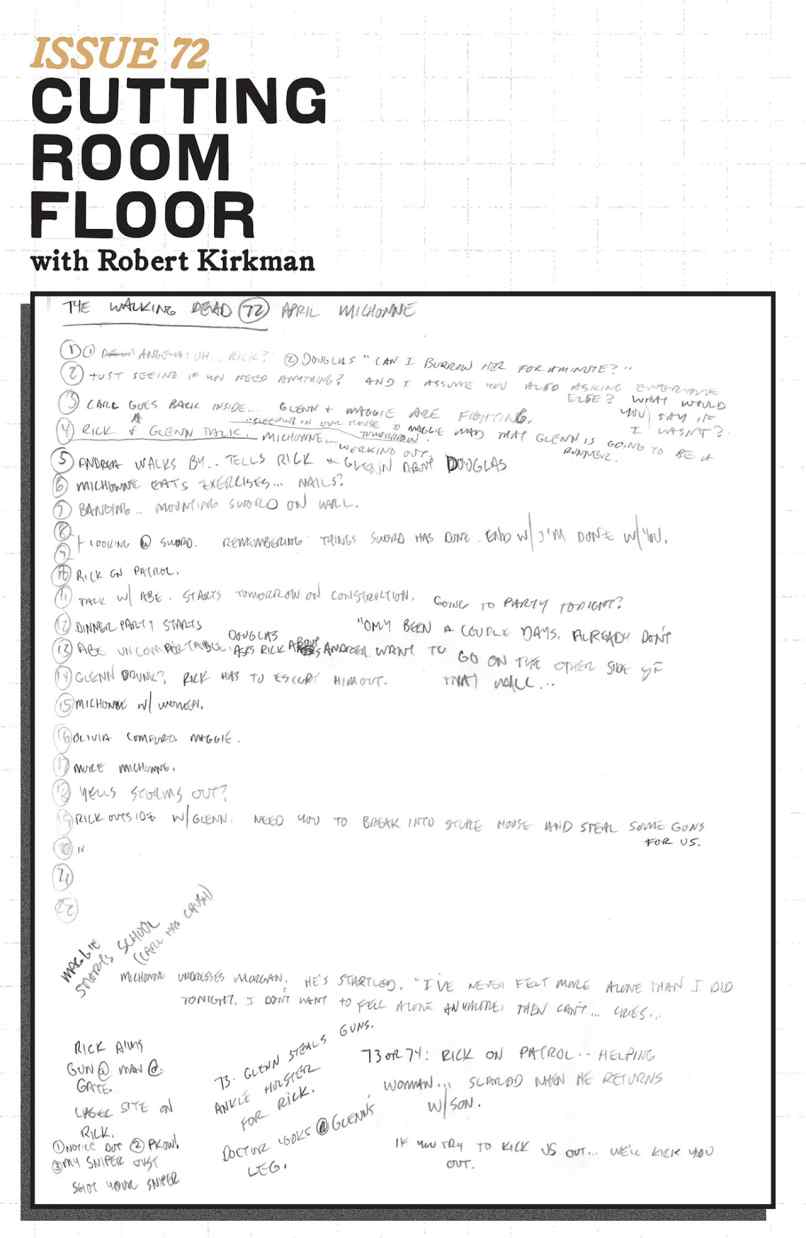 ISSUE 72
CUTTING
ROOM
FLOOR
with Robert Kirkman
THE WALKING DEAD 72 APRIL MICHONNE
1 1 ANDREA: UH.. RICK? 2 DOUGLAS "CAN I BURROW HER FOR A MINUTE?"
2 JUST SEEING IF YOU NEED ANYTHING? AND I ASSUME YOU ALSO ASKING EVERYONE
ELSE? WHAT WOULD
YOU SAY IF
I WASN'T?
3 CARL GOES BACK INSIDE... GLENN + MAGGIE ARE FIGHTING.
MAGGIE MAD THAT GLENN IS GOING TO BE A
RUNNER.
4 RICK & GLENN TALK. MICHONNE... TOMORROW.
WORKING OUT.
5 ANDREA WALKS BY.. TELLS RICK + GLENN ABOUT DOUGLAS
6 MICHONNE EATS EXERCISES... NAILS?
7 BANGING... MOUNTING SWORD ON WALL.
8
9 LOOKING @ SWORD. REMEMBERING THINGS SWORD HAS DONE. END W/ I'M DONE W/ YOU.
10 RICK ON PATROL.
11 TALK W/ ABE. STARTS TOMORROW ON CONSTRUCTION. GOING TO PARTY TONIGHT?
12 DINNER PARTY STARTS
13 ABE UNCOMFORTABLE DOUGLAS ASKS RICK ABOUT ANDREA
"ONLY BEEN A COUPLE DAYS. ALREADY DON'T
WANT TO GO ON THE OTHER SIDE OF
THAT WALL...
14 GLENN DRUNK?. RICK HAS TO ESCORT HIM OUT.
15 MICHONNE W/ WOMEN.
16 OLIVIA COMFORTS MAGGIE.
17 MORE MICHONNE.
18 YELLS STORMS OUT?
19 RICK OUTSIDE W/ GLENN. NEED YOU TO BREAK INTO STORE HOUSE AND STEAL SOME GUNS
FOR US.
20 "
21
22
MAGGIE
STARTS SCHOOL
(CARL HAS CRUSH)
MICHONNE UNDRESSES MORGAN. HE'S STARTLED. "I'VE NEVER FELT MORE ALONE THAN I DID
TONIGHT. I DON'T WANT TO FELL ALONE ANYMORE. THEN CAN'T... CRIES...
RICK AIMS
GUN @ MAN @
GATE.
LASER SITE ON
RICK.
1 NOTICE DOT 2 PKOW!
3 MY SNIPER JUST
SHOT YOUR SNIPER
73. GLENN STEALS GUNS.
ANKLE HOLSTER
FOR RICK.
DOCTOR LOOKS @ GLENN'S
LEG.
73 OR 74: RICK ON PATROL.. HELPING
WOMAN... SCARED WHEN HE RETURNS
W/ SON.
IF YOU TRY TO KICK US OUT... WE'LL KICK YOU
OUT.